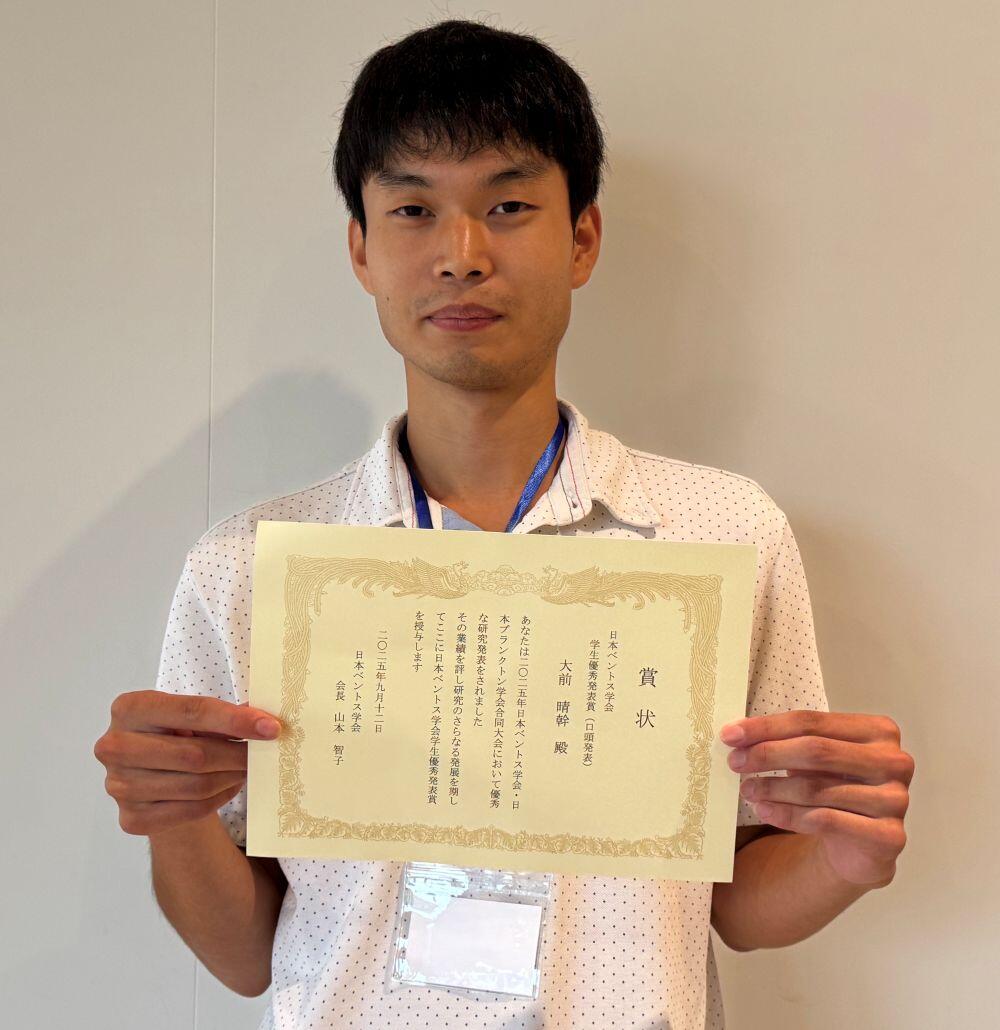 賞状
日本ベントス学会
学生優秀発表賞（口頭発表）
大前 晴幹 殿
あなたは二〇二五年日本ベントス学会・日
本プランクトン学会合同大会において優秀
な研究発表をされました
その業績を評し研究のさらなる発展を期し
てここに日本ベントス学会学生優秀発表賞
を授与します
二〇二五年九月十二日
日本ベントス学会
会長 山本 智子